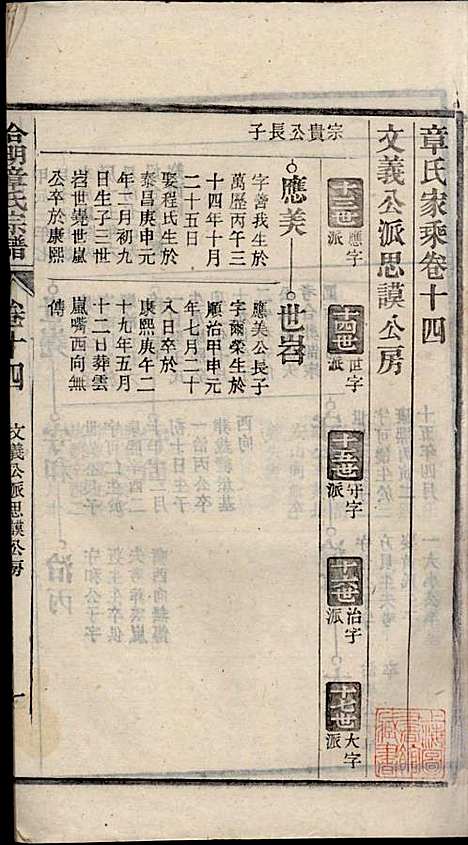 章氏家乘卷十四
文義公派思謨公房
十三世應字派
十四世世字派
十五世守字派
十六世治字派
十七世大字派
宗貴公長子
應美
世岩
字善我生於
萬歷丙午三
十四年十月
二十五日
娶程氏生於
泰昌庚申元
年二月初九
日生子三世
岩世世嵐
公卒於康熙
應美公長子
字爾榮生於
順治甲申元
年七月二十
入日卒於
康熙庚午二
十九年五月
十二日葬雲
嵐嘴西向無
傳
章氏宗譜
卷十四
文義公派思謨公房
一
上海圖書館藏書